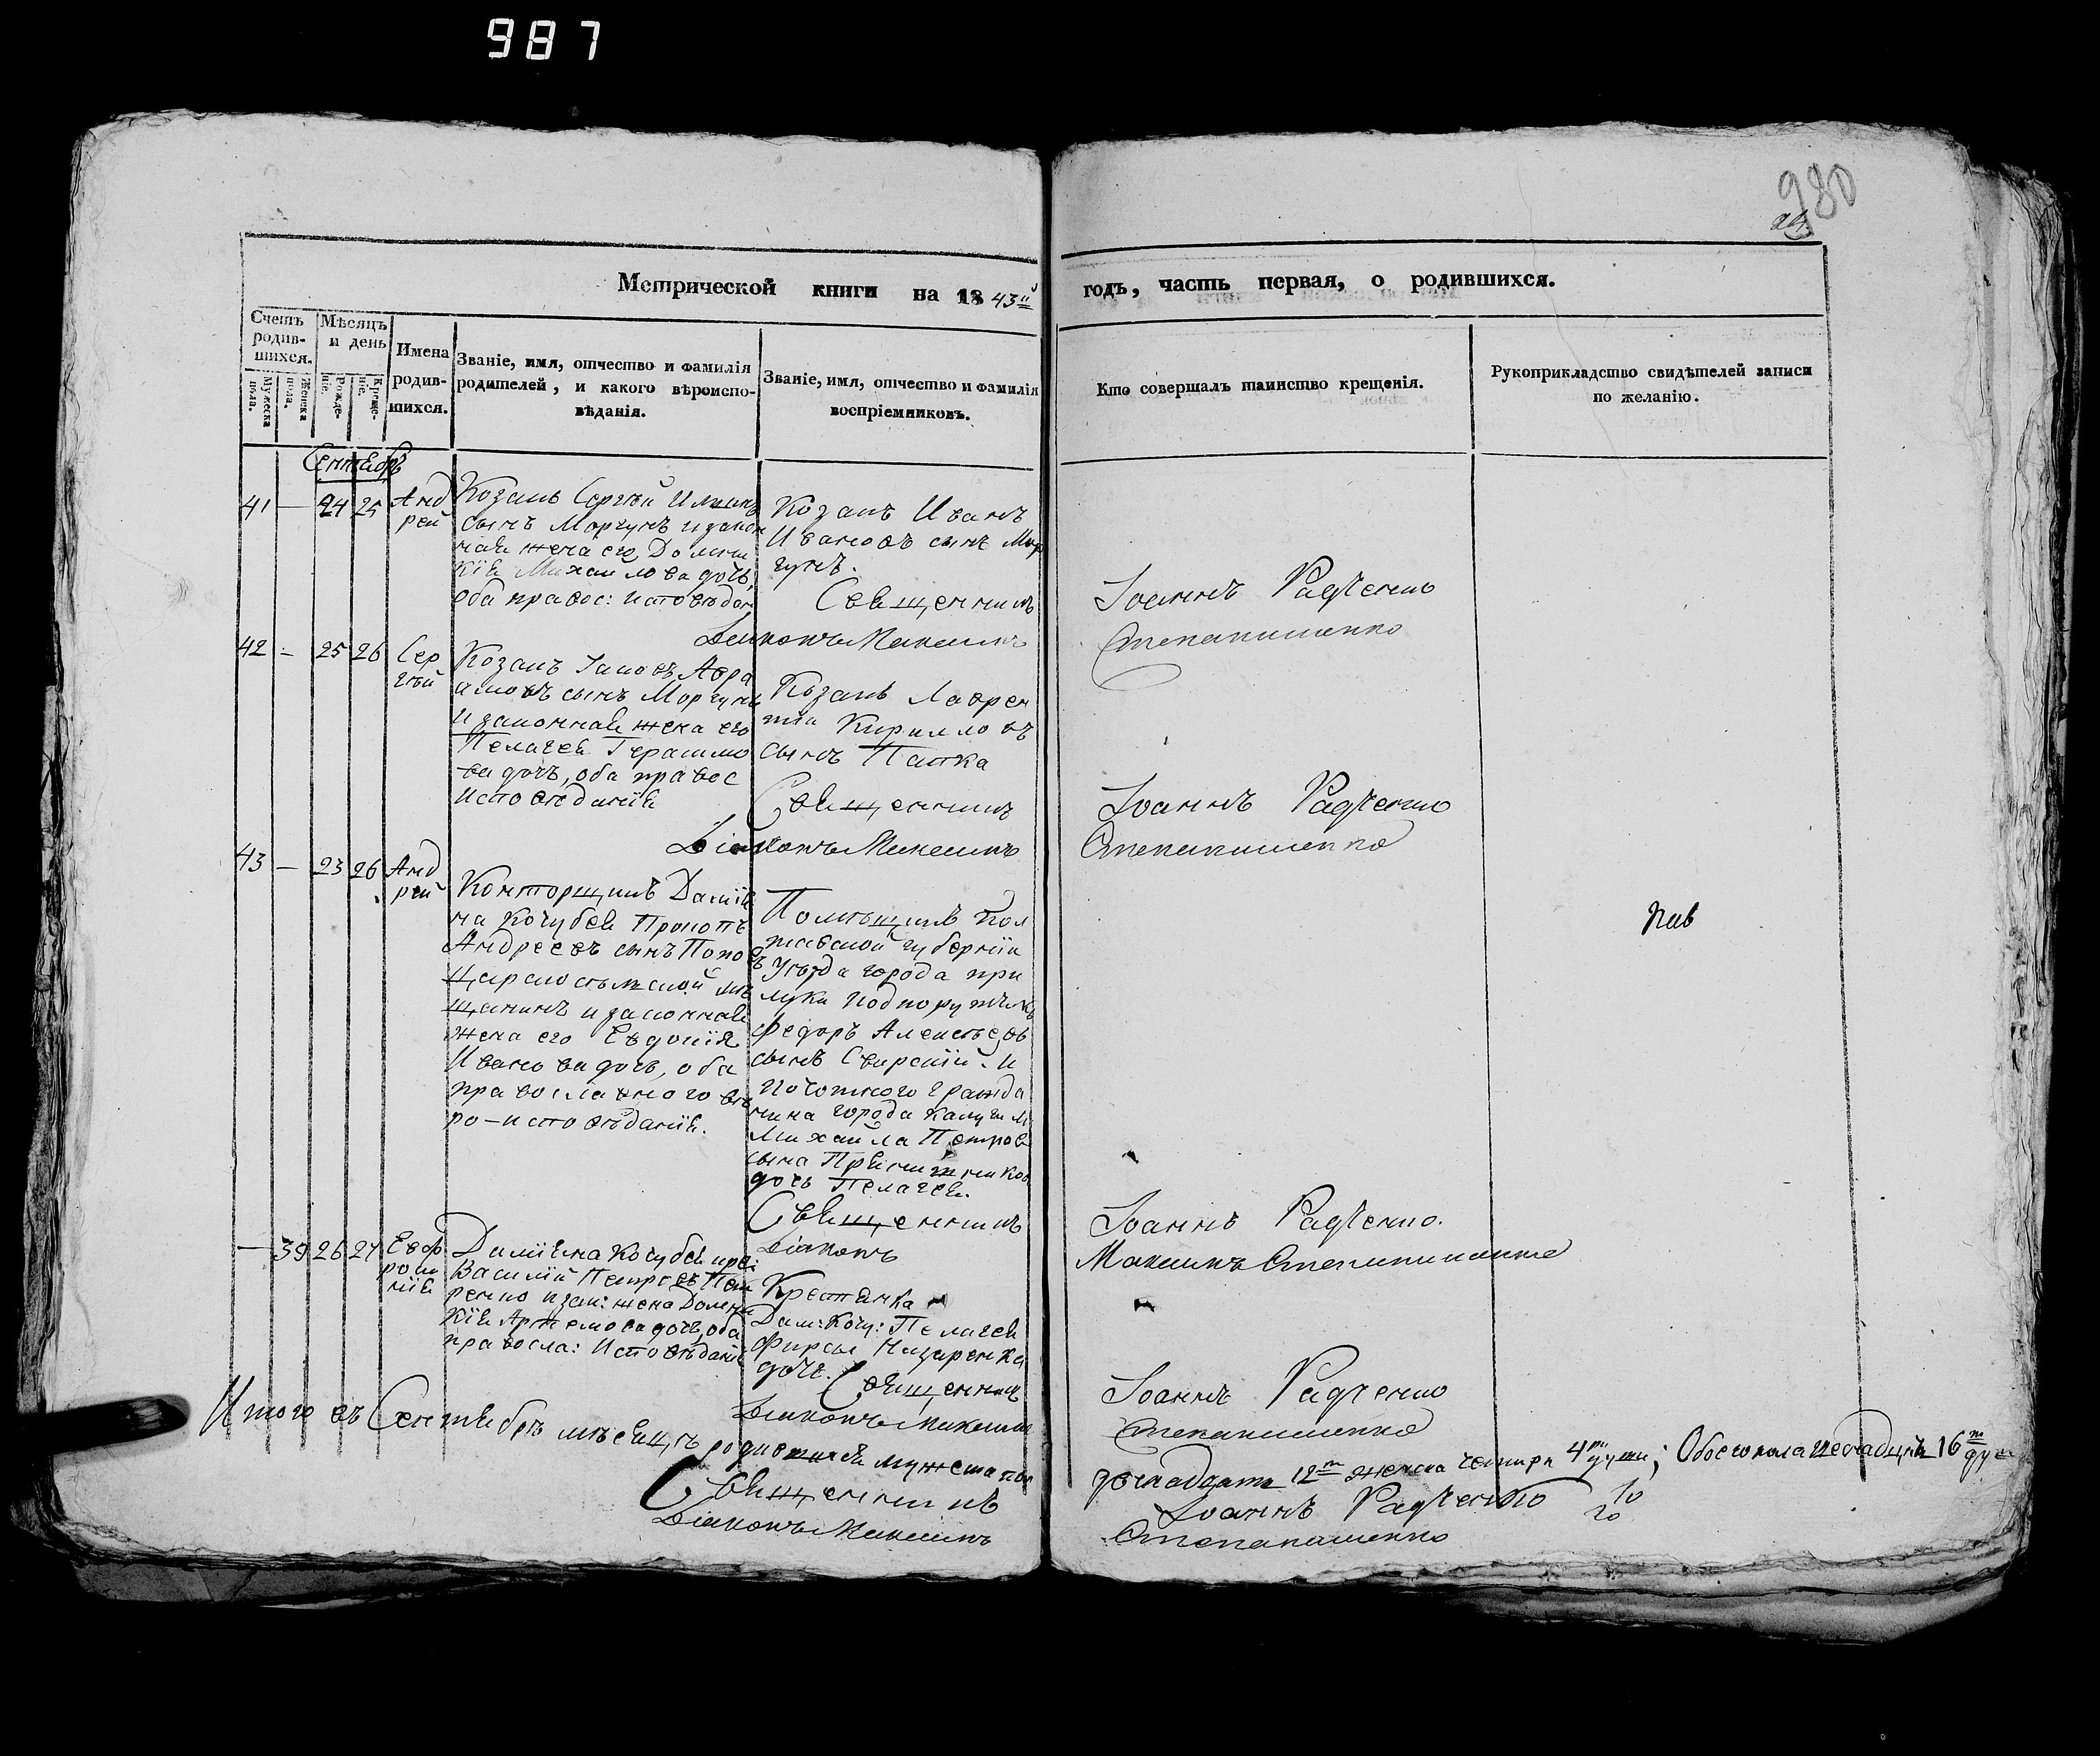 987
980
24
Метрической книги на 1843й годъ, часть первая, о родившихся.
Счетъ родившихся.
Мѣсяцъ и день
Имена родившихся.
Званіе, имя, отчество и фамилія родителей, и какого вѣроисповѣданія.
Званіе, имя, отчество и фамилія воспріемниковъ.
Кто совершалъ таинство крещенія.
Рукоприкладство свидѣтелей записи по желанію.
Мужеска пола.
Женска пола.
Рожденіе.
Крещеніе.
Сентябрь
41 — 24 25 Анд
рей
Козакъ Сергѣй
сынъ Моргунъ и закон
ная жена его Домни
кія Михайлова дочь,
оба правос: исповѣдан
Козакъ Иванъ
Ивановъ сынъ Мор
гунъ.
Священникъ Іоаннъ Радченко
Діаконъ Максимъ Степанишенко
42 — 25 26 Сер
гѣй
Козакъ Іаковъ Авра
амовъ сынъ Моргунъ
и законная жена его
Пелагея Герасимо
ва дочь, оба правос
исповѣданія
Козакъ Лаврен
тій Кирилловъ
сынъ Папка
Священникъ Іоаннъ Радченко
Діаконъ Максимъ Степанишенко
43 — 23 26 Анд
рей
Конторщикъ Даміа
на Кочубея Прокопъ
Андреевъ сынъ Попов
ъ Царскосельской мѣ
щанинъ и законная
жена его Евдокія
Иванова дочь, оба
православного вѣ
ро-исповѣданія.
Помѣщикъ Пол
тавской губерніи
Уѣзда города При
луки Подпоручикъ
Федоръ Алексѣевъ
сынъ Свирскій. и
Почотного гражда
нина города Калуги
Михайла Петрова
сына
дочь Пелагея.
Священникъ Іоаннъ Радченко.
Діаконъ Максимъ Степанишенко
— 39 26 27 Евф
роси
нія
Даміана Кочубея кре:
Василій Петровъ Пет
ренко и зак: жена Домни
кія Артемова дочь, оба
правосла: исповѣданія
Крестянка
Дам: Кочу: Пелагея
Фирсы Назаренка
дочь.
Священникъ Іоаннъ Радченко
Діаконъ Максимъ Степанишенко
Итого въ Сентябрѣ мѣсяцѣ родившихся мужеска пол двенадцать 12т женска четыри 4ри души; Обоего пола шеснадцять 16т душ
Священникъ Іоаннъ Радченко
Діаконъ Максимъ Степанишенко